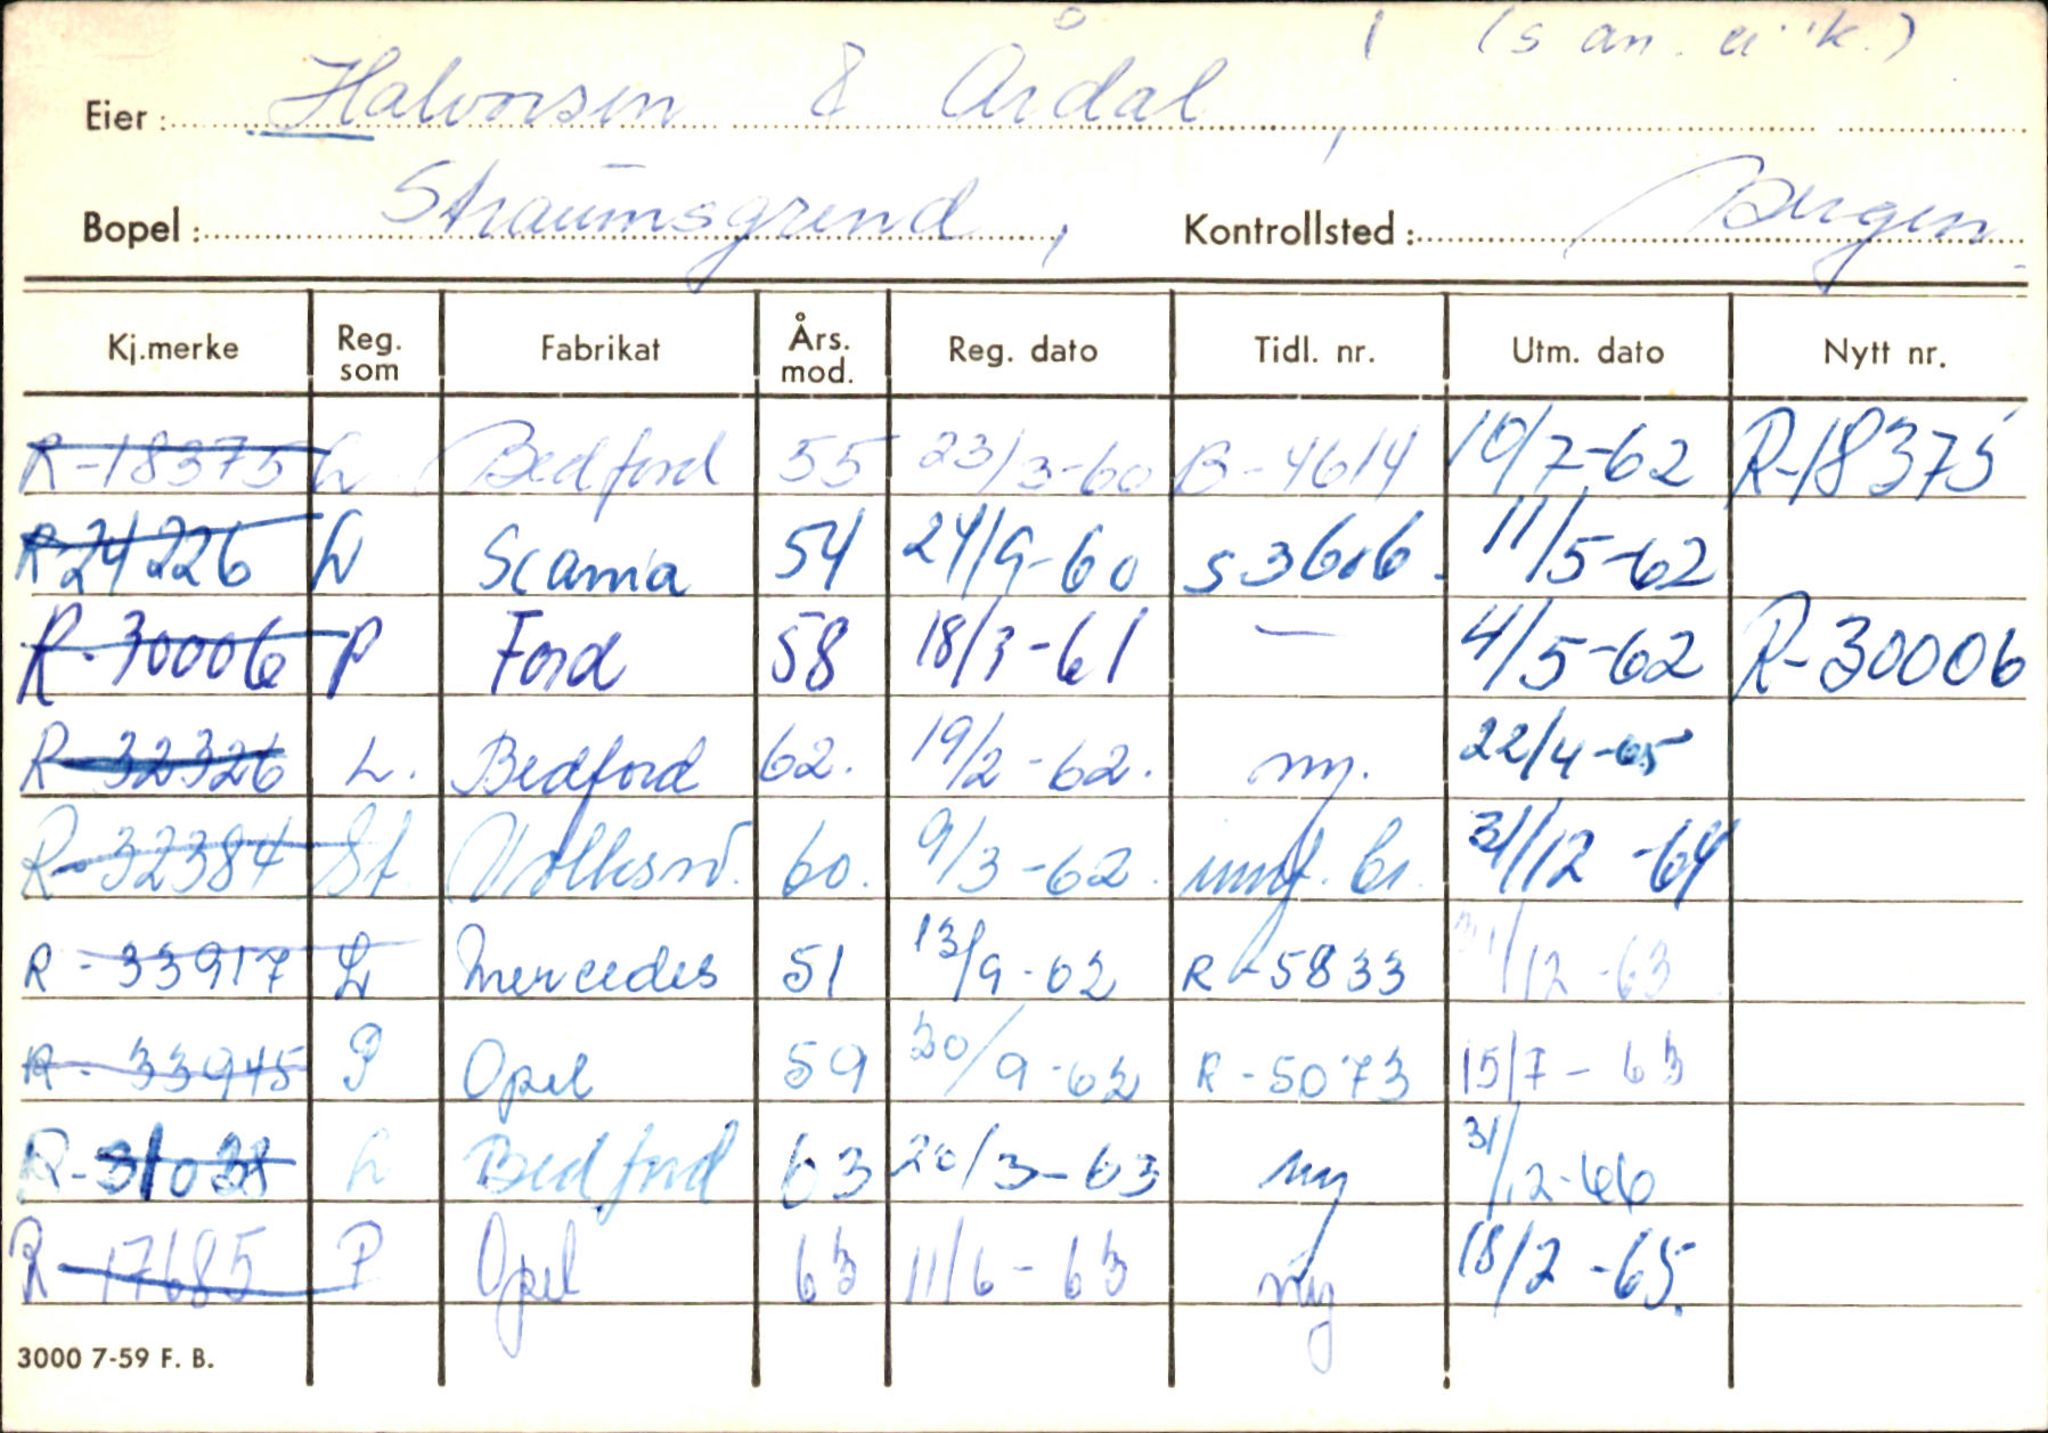 (s an. ei "k.)
Eier: Halvorsen & Årdal,
Bopel: Straumsgrend, Kontrollsted: Bergen
Kj.merke Reg. som Fabrikat Års. mod. Reg. dato Tidl. nr. Utm. dato Nytt nr.
R-18375 L Bedford 55 23/3-60 B-4614 10/7-62 R-18375
R-24226 L Scania 54 24/9-60 S-3606 11/5-62
R-30006 P Ford 58 18/3-61 — 4/5-62 R-30006
R-32326 L. Bedford 62. 19/2-62. ny. 22/4-65
R-32384 St. Volksw. 60. 9/3-62. innf. br. 31/12-64
R-33917 L Mercedes 51 13/9-62 R-5833 31/12-63
R-33945 P Opel 59 20/9-62 R-5073 15/7-63
R-31038 L Bedford 63 20/3-63 ny 31/12-66
R-17685 P Opel 63 11/6-63 ny 18/2-65.
3000 7-59 F. B.